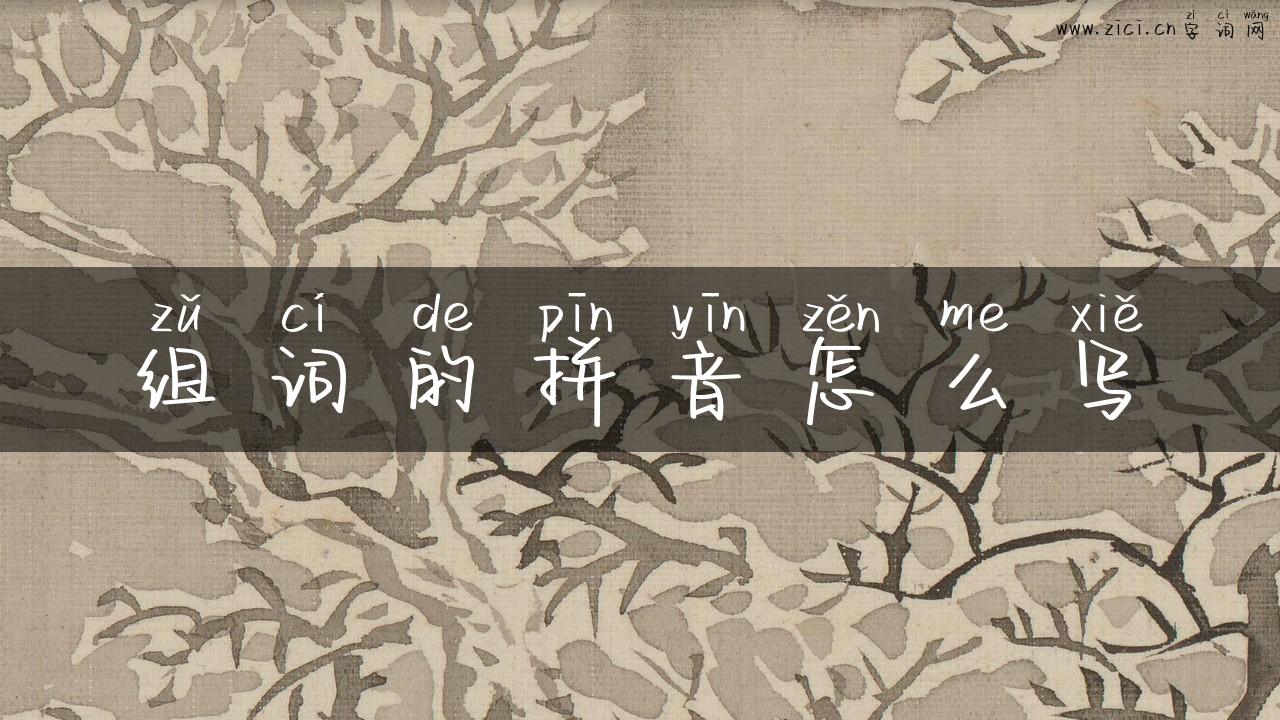 zì cí wǎng
www.zici.cn 字词网
zǔ cí de pīn yīn zěn me xiě
组词的拼音怎么写